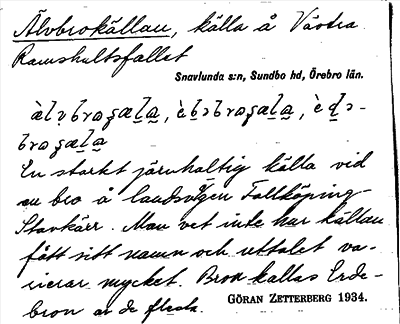 Älvbrokällan, källa å Västra
Ramshultsfallet
Snavlunda s:n, Sundbo hd, Örebro län.
En starkt järnhaltig källa vid
en bro å landsvägen
Man vet inte hur källan
fått sitt namn och uttalet va-
rierar mycket. Bron kallas Erde-
bron av de flesta. GÖRAN ZETTERBERG 1934.